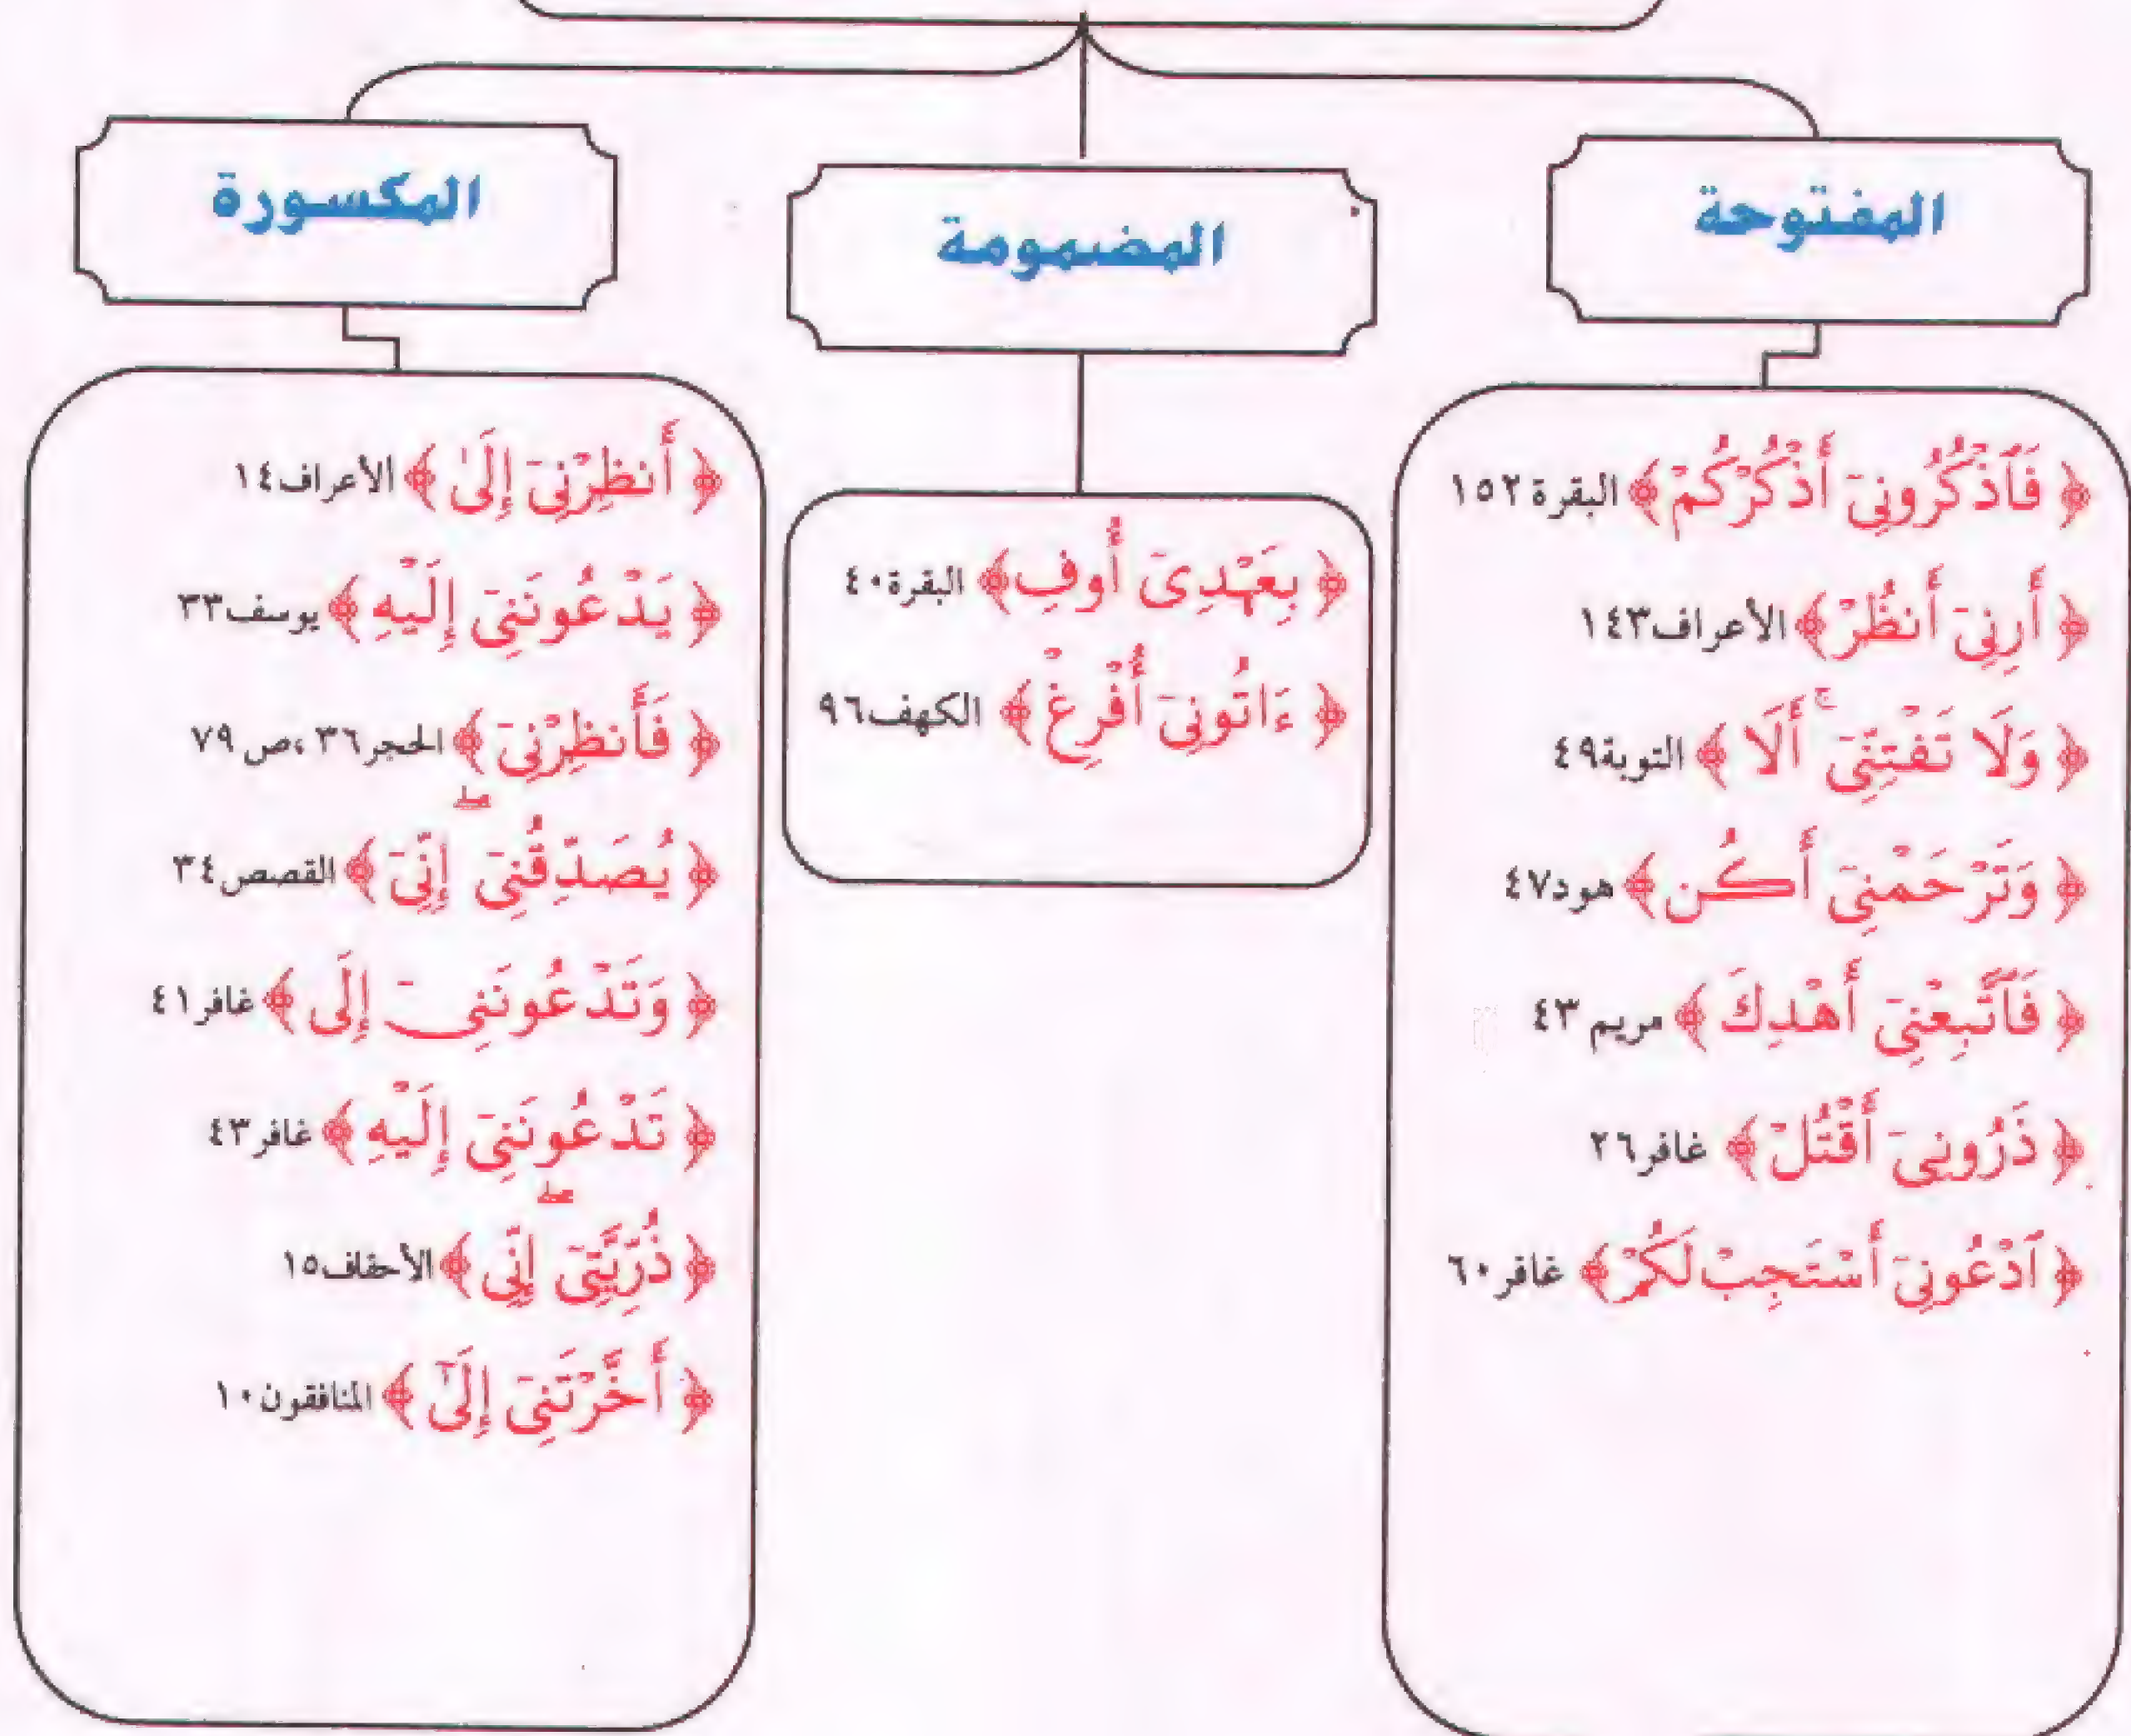 المفتوحة
﴿ فَٱذْكُرُونِىٓ أَذْكُرْكُمْ ﴾ البقرة ١٥٢
﴿ أَرِنِىٓ أَنظُرْ ﴾ الأعراف ١٤٣
﴿ وَلَا تَفْتِنِّىٓ ۚ أَلَا ﴾ التوبة ٤٩
﴿ وَتَرْحَمْنِىٓ أَكُن ﴾ هود ٤٧
﴿ فَٱتَّبِعْنِىٓ أَهْدِكَ ﴾ مريم ٤٣
﴿ ذَرُونِىٓ أَقْتُلْ ﴾ غافر ٢٦
﴿ ٱدْعُونِىٓ أَسْتَجِبْ لَكُمْ ﴾ غافر ٦٠
المضمومة
﴿ بِعَهْدِىٓ أُوفِ ﴾ البقرة ٤٠
﴿ ءَاتُونِىٓ أُفْرِغْ ﴾ الكهف ٩٦
المكسورة
﴿ أَنظِرْنِىٓ إِلَىٰ ﴾ الأعراف ١٤
﴿ يَدْعُونَنِىٓ إِلَيْهِ ﴾ يوسف ٣٣
﴿ فَأَنظِرْنِىٓ ﴾ الحجر ٣٦ ، ص ٧٩
﴿ يُصَدِّقُنِىٓ ۖ إِنِّىٓ ﴾ القصص ٣٤
﴿ وَتَدْعُونَنِىٓ إِلَى ﴾ غافر ٤١
﴿ تَدْعُونَنِىٓ إِلَيْهِ ﴾ غافر ٤٣
﴿ ذُرِّيَّتِىٓ ۖ إِنِّى ﴾ الأحقاف ١٥
﴿ أَخَّرْتَنِىٓ إِلَىٰٓ ﴾ المنافقون ١٠